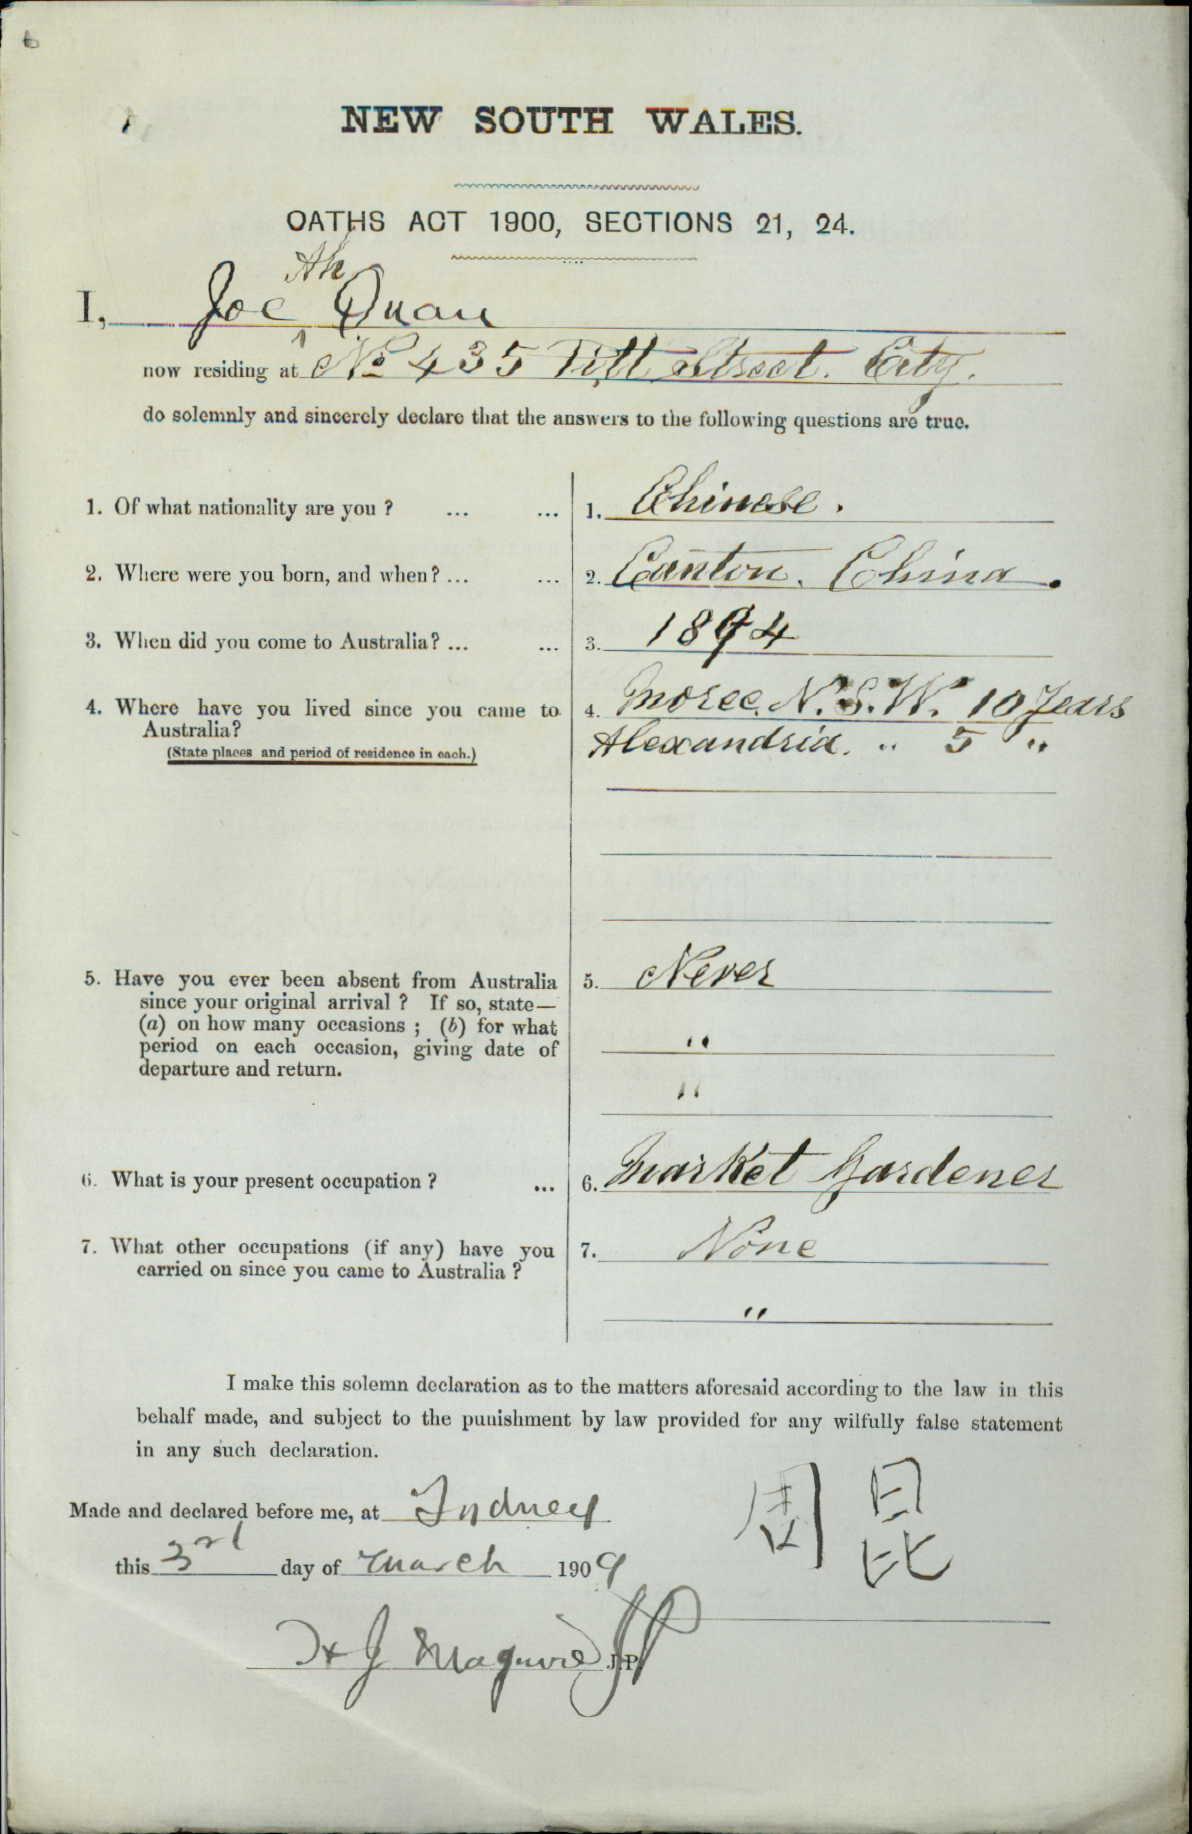 NEW SOUTH WALES.
OATHS ACT 1900, SECTIONS 21, 24.
I, Joe Ah Quan
now residing at No 435 Pitt Street. City.
do solemnly and sincerely declare that the answers to the following questions are true.
1. Of what nationality are you? ... ... 1. Chinese.
2. Where were you born, and when? ... ... 2. Canton. China.
3. When did you come to Australia? ... ... 3. 1894
4. Where have you lived since you came to 4. Moree. N.S.W. 10 Years
Australia? Alexandria. " 5 "
(State places and period of residence in each.)
5. Have you ever been absent from Australia 5. Never
since your original arrival? If so, state—
(a) on how many occasions; (b) for what
period on each occasion, giving date of "
departure and return. "
6. What is your present occupation? ... 6. Market Gardener
7. What other occupations (if any) have you 7. None
carried on since you came to Australia?
"
I make this solemn declaration as to the matters aforesaid according to the law in this
behalf made, and subject to the punishment by law provided for any wilfully false statement
in any such declaration.
Made and declared before me, at Sydney
this 3rd day of March 1909
周昆
H J Maguire JP
J.P.